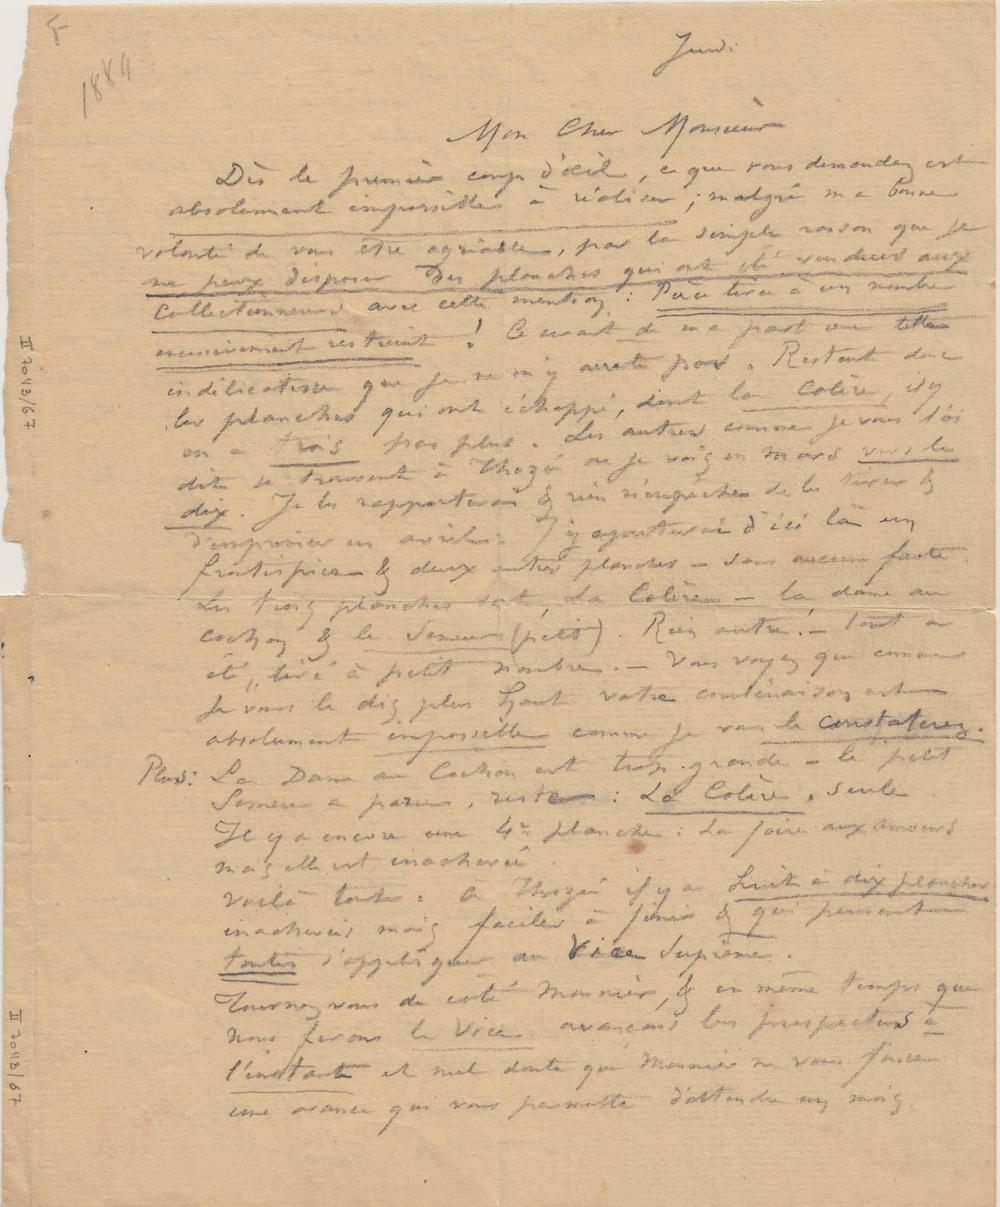 5
1884
Jeudi
Mon Cher Monsieur
Dès le premier coup d'œil, ce que vous demandez est
absolument impossible à réaliser ; malgré ma bonne
volonté de vous être agréable, par la simple raison que je
ne peux disposer des planches qui ont été vendues aux
collectionneurs avec cette mention : Pièce tirée à un nombre
excessivement restreint ! Ce serait de ma part une telle
indélicatesse que je ne m'y arrête pas. Restent donc
les planches qui ont échappé, dont la Colère, il y
en a trois pas plus. Les autres comme je vous l'ai
dit se trouvent à Thozée où je vais en mars vers le
dix. Je les rapporterai & rien n'empêchera de les tirer &
d'imprimer en avril. J'y ajouterai d'ici là un
frontispice & deux autres planches – sans aucune faute
Les trois planches sont, La Colère – la dame au
cochon & le Semeur (petit). Rien autre ! – Tout a
été, tiré à petit nombre. – Vous voyez que comme
je vous le dis plus haut votre combinaison est
absolument impossible comme je vous le constaterez.
Plus : La Dame au Cochon est trop grande – le petit
Semeur a paru, reste : La Colère. seule
Il y a encore une 4e planche : La foire aux amours
mais elle est inachevée.
Voilà tout. à Thozée il y a huit à dix planches
inachevées mais faciles à finir & qui peuvent
toutes s'appliquer au Vice Suprême.
Tournez vous du coté Monnier, & en même temps que
nous ferons le Vice avançons les prospectus à
l'instant et nul doute que Monnier ne vous fasse
une avance qui vous permette d'attendre un mois
II 7043/67
II 7043/67